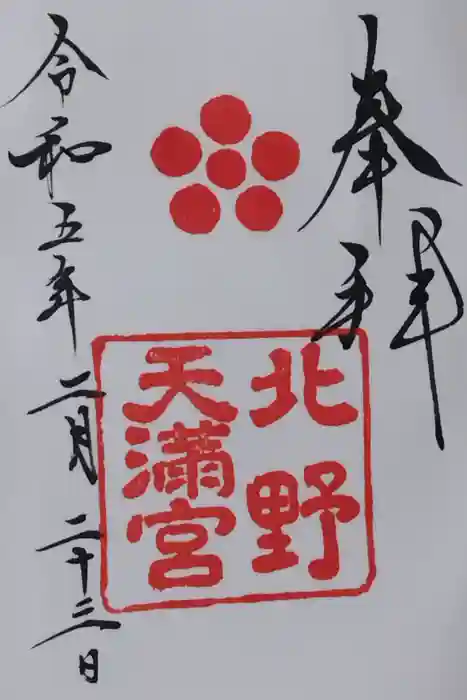 奉拝
北野
天満宮
令和五年二月二十三日